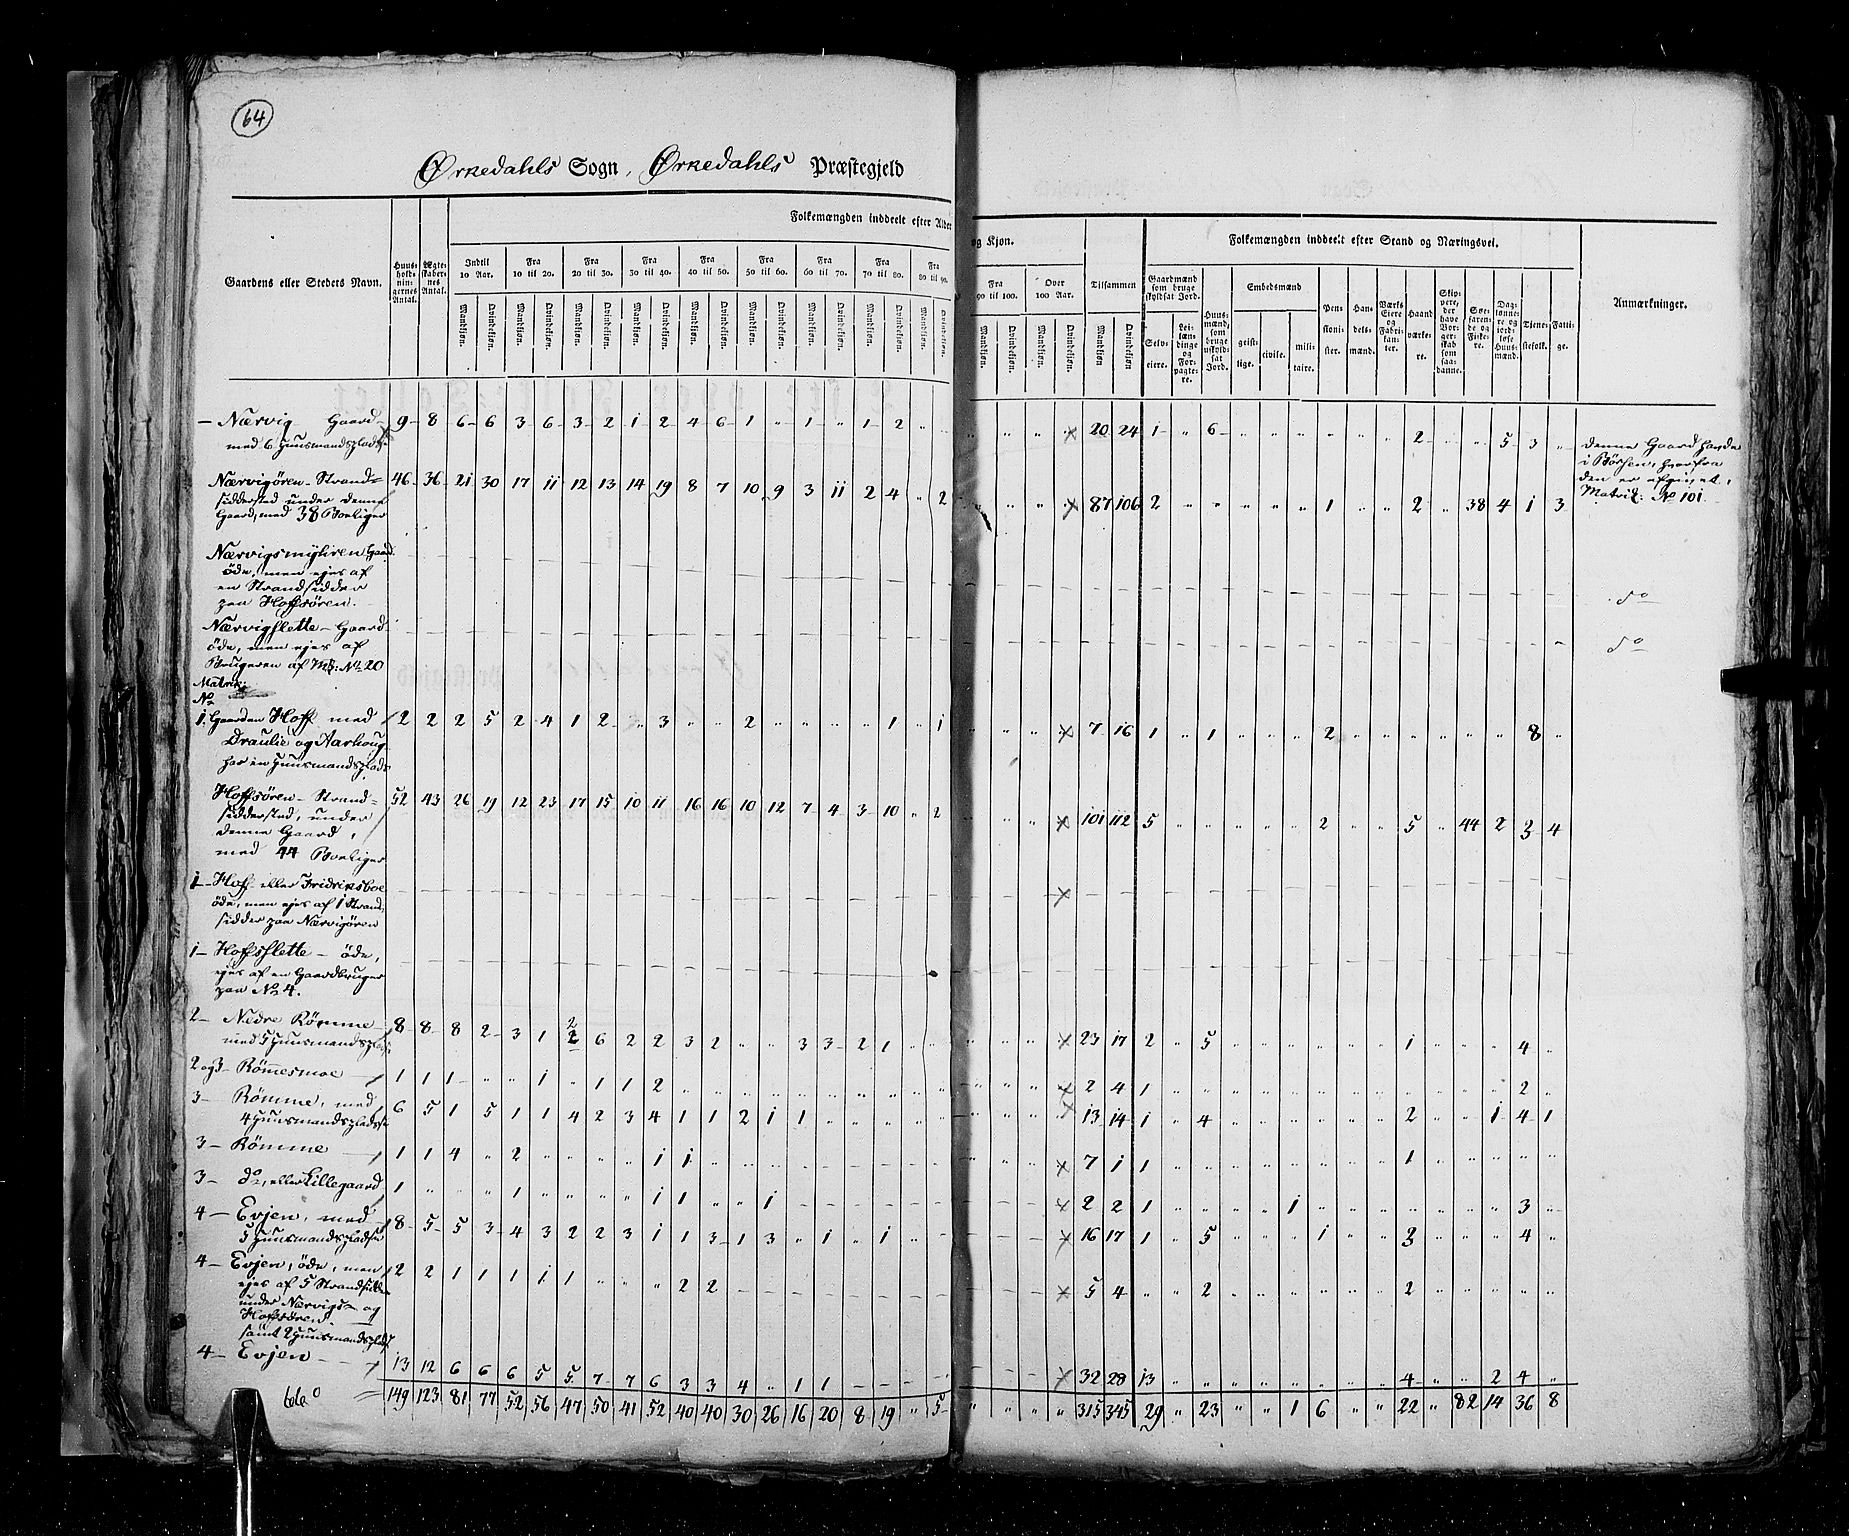 64
Ørkedahls Sogn, Ørkedahls Præstegjeld
Gaardens eller Stedets Navn.
Huus-holdnin-gernes Antal.
Ægte-skaber-nes Antal.
Folkemængden inddeelt efter Alder og Kjøn.
Indtil 10 Aar. Fra 10 til 20. Fra 20 til 30. Fra 30 til 40. Fra 40 til 50. Fra 50 til 60. Fra 60 til 70. Fra 70 til 80. Fra 80 til 90. Fra 90 til 100. Over 100 Aar. Tilsammen
Mandkjøn. Qvindekjøn.
Folkemængden inddeelt efter Stand og Næringsvei.
Gaardmænd som bruge skyldsat Jord.
Selveiere. Leilændinge og Forpagtere.
Huusmænd, som bruge uskyldsat Jord.
Embedsmænd
geistlige. civile. militaire.
Pensionister. Handelsmænd. Værks Eiere og Fabrikanter. Haandværkere. Skippere, der have Borgerskab som saadanne. Søefarende og Fiskere. Dagslønnere og jordløse Huusmænd. Tjenestefolk. Fattige.
Anmærkninger.
— Nærvig Gaard 9 8 6 6 3 6 3 2 1 2 4 6 1 " 1 " 1 2 20 24 1 " 6 2 5 3
med 6 Huusmandspladse
denne Gaard havde
i Børsen, hvorfra
den er afgivet,
Matrik: No 101
Nærvigören - Strand= 46 36 21 30 17 11 12 13 14 19 8 7 10 9 3 11 2 4 " 2 87 106 2 1 2 " 38 4 1 3
siddersted under denne
Gaard, med 38 Boeliger
Nærvigsmyhren Gaard
öde, men ejes af
en Strandsidder
paa Hoffsören.
do
Nærvigslette - Gaard
öde, men ejes af
Brugeren af No 20
do
Matrik:
No
1. Gaarden Hoff med 2 2 2 5 2 4 1 2 " 3 " " 2 " " " " 1 " 1 7 16 1 " 1 2 8
Draulie og Aarhoug
har en Huusmandsplads
Hoffsören - Strand= 52 43 26 19 12 23 17 15 10 11 16 16 10 12 7 4 3 10 " 2 101 112 5 2 5 " 44 2 3 4
siddersted, under
denne Gaard,
med 44 Boeliger
1 - Hoff eller Fridriksboe
öde, men ejes af 1 Strand
sidder paa Nærvigören
1 - Hoffslette - öde,
ejes af en Gaardbruger
paa No 4.
2 - Nedre Rømme 8 8 8 2 3 1 2 6 2 2 3 2 " " 3 3 2 1 23 17 2 " 5 1 4
med 5 Huusmandspladse
2 og 3 - Römmesmoe 1 1 1 " " 1 " 1 1 2 2 4 1 2
3 - Römme, med 6 5 1 5 1 1 4 2 3 4 1 1 2 1 1 13 14 1 " 4 2 " " 1 4 1
4 Huusmandspladse
3 - Römme 1 1 4 " 2 " " " " 1 1 7 1 1 1
3 - do, eller Lillegaard 1 " " " 1 " " " " 1 1 " " 1 2 2 1 1 3
4 - Evjen, med 8 5 5 3 4 3 2 2 3 1 1 3 1 3 " 1 " 1 16 17 1 " 5 1 3 4
5 Huusmandspladse
4 - Evjen, öde, men 2 2 1 1 1 1 1 " " " 2 2 5 4 " " 2 2
ejes af 5 Strandsiddere
under Nærvigs- og
Hoffsören
samt 2 Huusmandsplads
4 - Evjen 13 12 6 6 6 5 5 7 7 6 3 3 4 " 1 1 32 28 13 4 " " 2 4
149 123 81 77 52 56 47 50 41 52 40 40 30 26 16 20 8 19 " 5 315 345 29 " 23 " " 1 6 " " 22 " 82 14 36 8